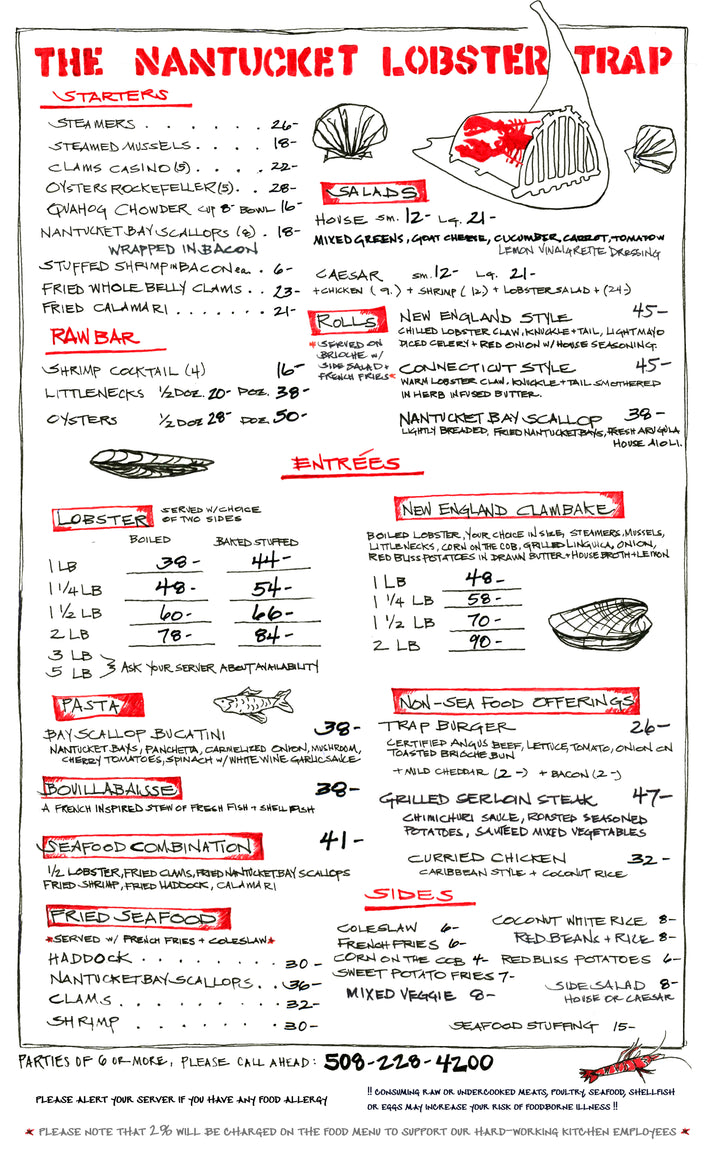 THE NANTUCKET LOBSTER TRAP
STARTERS
STEAMERS . . . . . . . 26-
STEAMED MUSSELS . . . . 18-
CLAMS CASINO (5) . . . . 22-
OYSTERS ROCKEFELLER (5) . . 28-
QUAHOG CHOWDER CUP 8- BOWL 16-
NANTUCKET BAY SCALLOPS (8) . 18-
WRAPPED IN BACON
STUFFED SHRIMP IN BACON ea. . 6-
FRIED WHOLE BELLY CLAMS . . 23-
FRIED CALAMARI . . . . . . . 21-
RAW BAR
SHRIMP COCKTAIL (4) 16-
LITTLENECKS 1/2 DOZ. 20- DOZ. 38-
OYSTERS 1/2 DOZ 28- DOZ. 50-
SALADS
HOUSE SM. 12- LG. 21-
MIXED GREENS, GOAT CHEESE, CUCUMBER, CARROT, TOMATO W
LEMON VINAIGRETTE DRESSING
CAESAR SM. 12- LG. 21-
+ CHICKEN ( 9. ) + SHRIMP ( 12. ) + LOBSTER SALAD + (24-)
ROLLS
*SERVED ON
BRIOCHE W/
SIDE SALAD +
FRENCH FRIES*
NEW ENGLAND STYLE 45-
CHILLED LOBSTER CLAW, KNUCKLE + TAIL, LIGHT MAYO
DICED CELERY + RED ONION W/ HOUSE SEASONING.
CONNECTICUT STYLE 45-
WARM LOBSTER CLAW, KNUCKLE + TAIL SMOTHERED
IN HERB INFUSED BUTTER.
NANTUCKET BAY SCALLOP 38-
LIGHTLY BREADED, FRIED NANTUCKET BAYS, FRESH ARUGULA
HOUSE AIOLI.
ENTRÉES
LOBSTER SERVED W/ CHOICE
OF TWO SIDES
BOILED BAKED STUFFED
1 LB 38- 44-
1 1/4 LB 48- 54-
1 1/2 LB 60- 66-
2 LB 78- 84-
3 LB
5 LB } ASK YOUR SERVER ABOUT AVAILABILITY
NEW ENGLAND CLAMBAKE
BOILED LOBSTER, YOUR CHOICE IN SIZE, STEAMERS, MUSSELS,
LITTLENECKS, CORN ON THE COB, GRILLED LINGUICA, ONION,
RED BLISS POTATOES IN DRAWN BUTTER + HOUSE BROTH + LEMON
1 LB 48-
1 1/4 LB 58-
1 1/2 LB 70-
2 LB 90-
PASTA
BAY SCALLOP BUCATINI 38-
NANTUCKET BAYS, PANCHETTA, CARMELIZED ONION, MUSHROOM,
CHERRY TOMATOES, SPINACH W/ WHITE WINE GARLIC SAUCE
BOUILLABAISSE 38-
A FRENCH INSPIRED STEW OF FRESH FISH + SHELLFISH
SEAFOOD COMBINATION 41-
1/2 LOBSTER, FRIED CLAMS, FRIED NANTUCKET BAY SCALLOPS
FRIED SHRIMP, FRIED HADDOCK, CALAMARI
FRIED SEAFOOD
*SERVED W/ FRENCH FRIES + COLESLAW*
HADDOCK . . . . . . . . 30-
NANTUCKET BAY SCALLOPS . . 36-
CLAMS . . . . . . . . . 32-
SHRIMP . . . . . . . . 30-
NON-SEA FOOD OFFERINGS
TRAP BURGER 26-
CERTIFIED ANGUS BEEF, LETTUCE, TOMATO, ONION ON
TOASTED BRIOCHE BUN
+ MILD CHEDDAR (2-) + BACON (2-)
GRILLED SERLOIN STEAK 47-
CHIMICHURI SAUCE, ROASTED SEASONED
POTATOES, SAUTEED MIXED VEGETABLES
CURRIED CHICKEN 32-
CARIBBEAN STYLE + COCONUT RICE
SIDES
COLESLAW 6-
FRENCH FRIES 6-
CORN ON THE COB 4-
SWEET POTATO FRIES 7-
MIXED VEGGIE 8-
COCONUT WHITE RICE 8-
RED BEANS + RICE 8-
RED BLISS POTATOES 6-
SIDE SALAD 8-
HOUSE OR CAESAR
SEAFOOD STUFFING 15-
PARTIES OF 6 OR MORE, PLEASE CALL AHEAD: 508-228-4200
PLEASE ALERT YOUR SERVER IF YOU HAVE ANY FOOD ALLERGY
!! CONSUMING RAW OR UNDERCOOKED MEATS, POULTRY, SEAFOOD, SHELLFISH
OR EGGS MAY INCREASE YOUR RISK OF FOODBORNE ILLNESS !!
* PLEASE NOTE THAT 2% WILL BE CHARGED ON THE FOOD MENU TO SUPPORT OUR HARD-WORKING KITCHEN EMPLOYEES *